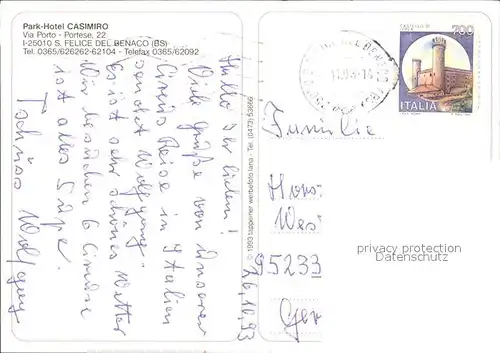 Park-Hotel CASIMIRO
Via Porto - Portese, 22
I-25010 S. FELICE DEL BENACO (BS)
Tel. 0365/626262-62104 - Telefax 0365/62092
Hallo Ihr lieben!
Viele grüße von unserer
Circus Reise in Italien
sendet Wolfgang.
es ist sehr schönes Wetter
Wir besuchen 6 Circusse
ist alles Supe.
Tschüss Wolfgang
26.10.93
© 1993 tappeiner werbefoto lana - Tel. (0473) 53666
700
ITALIA
Familie
Hors
Wes
95233
Ger
privacy protection
Datenschutz